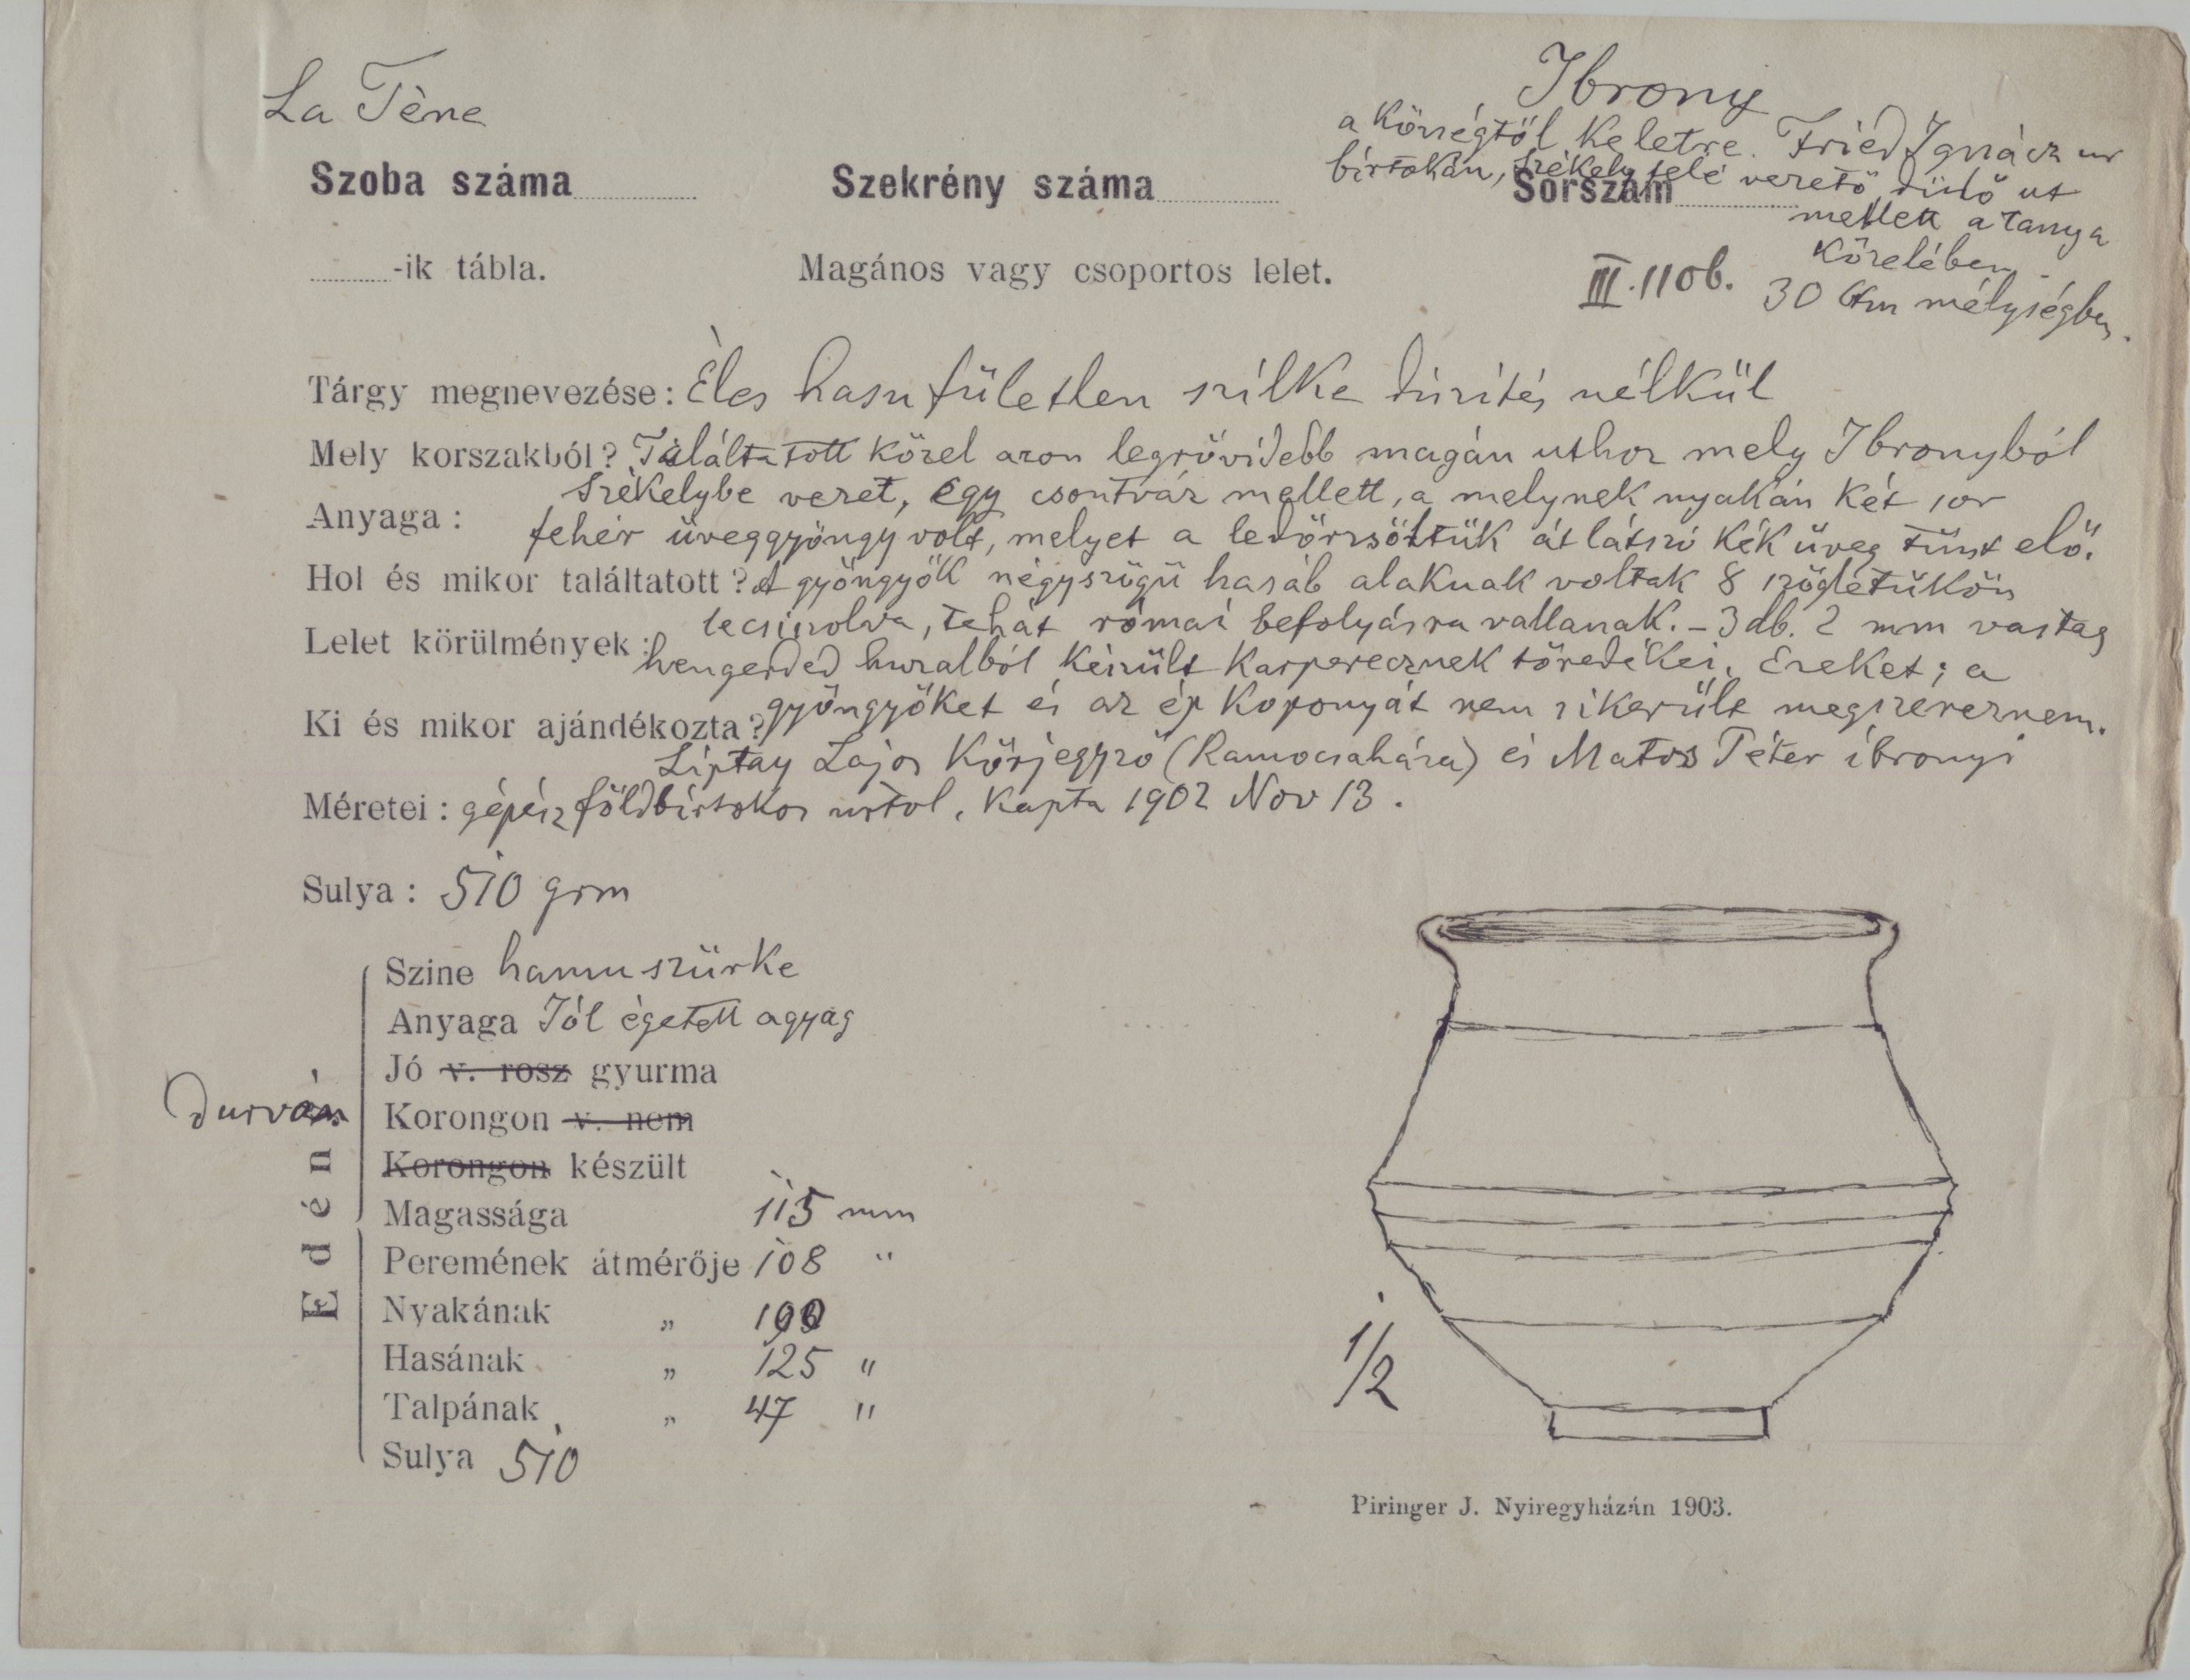 La Tène
Ibrony
a községtől keletre. Fried Ignácz ur
birtokán, Székely felé vezető dülő ut
mellett a tanya
közelében
30 Ctm mélységben.
Szoba száma
Szekrény száma
Sorszám
-ik tábla.
Magános vagy csoportos lelet.
III. 110b.
Tárgy megnevezése: Éles hasu fületlen szilke díszítés nélkül
Mely korszakból? Találtatott közel azon legrövidebb magán uthoz mely Ibronyból
Székelybe vezet, egy csontváz mellett, a melynek nyakán két sor
Anyaga:
fehér üveggyöngy volt, melyet a ledörzsöltük átlátszó kék üveg tünt elő.
Hol és mikor találtatott? A gyöngyök négyszögü hasáb alakuak voltak 8 szögletükön
lecsiszolva, tehát római befolyásra vallanak. - 3 db. 2 mm vastag
Lelet körülmények:
hengerded huzalból készült karperecznek töredékei. Ezeket; a
Ki és mikor ajándékozta? gyöngyöket és az ép koponyát nem sikerült megszereznem.
Liptay Lajos Körjegyző (Ramocsaháza) és Matos Péter ibronyi
Méretei: gépész földbirtokos urtol. Kapta 1902 Nov 13.
Sulya: 510 grm
Szine hamuszürke
Anyaga Jól égetett agyag
Jó v. rosz gyurma
durván
Korongon v. nem
Korongon készült
Edény
Magassága 115 mm
Peremének átmérője 108 "
Nyakának " 100
Hasának " 125 "
Talpának " 47 "
Sulya 510
1/2
Piringer J. Nyiregyházán 1903.